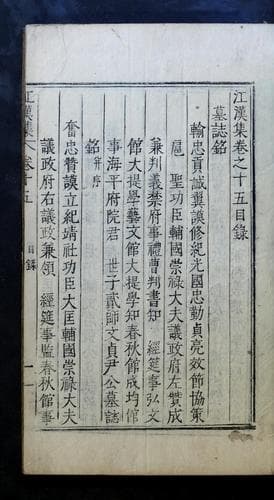 江漢集卷之十五目錄
墓誌銘
輸忠貢誠翼謨修紀光國忠勤貞亮效節協策
扈聖功臣輔國崇祿大夫議政府左贊成
兼判義禁府事禮曹判書知 經筵事弘文
館大提學藝文館大提學知春秋館成均館
事海平府院君 世子貳師文貞尹公墓誌
銘幷序
奮忠贊謨立紀靖社功臣大匡輔國崇祿大夫
議政府右議政兼領 經筵事監春秋館事
江漢集 卷十五 目錄 一